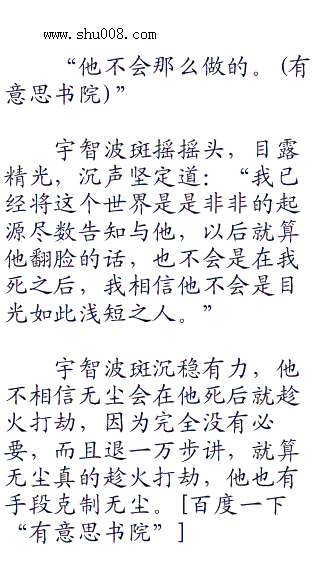 www.shu008.com
“他不会那么做的。(有
意思书院)”
宇智波斑摇摇头，目露
精光，沉声坚定道：“我已
经将这个世界是是非非的起
源尽数告知与他，以后就算
他翻脸的话，也不会是在我
死之后，我相信他不会是目
光如此浅短之人。”
宇智波斑沉稳有力，他
不相信无尘会在他死后就趁
火打劫，因为完全没有必
要，而且退一万步讲，就算
无尘真的趁火打劫，他也有
手段克制无尘。[百度一下
“有意思书院”]